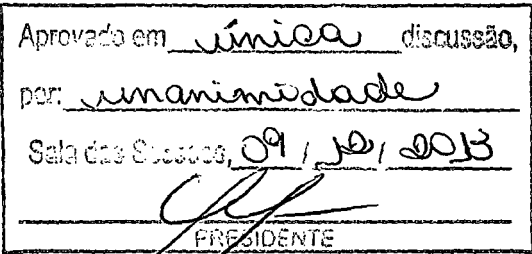 Aprovado em única discussão,
por: unanimidade
Sala das Sessões, 09 / 12 / 2013
PRESIDENTE